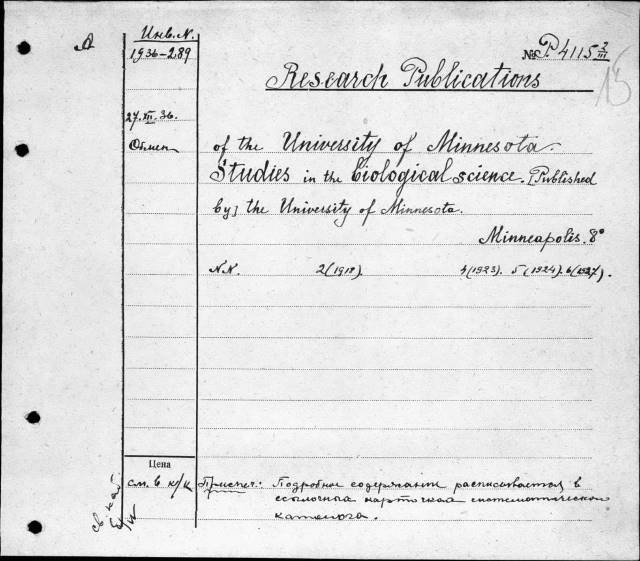 А
Инв. N.
1936-289
№ P. 4115 2/III
15
Research Publications
27.XII.36.
Обмен
of the University of Minnesota.
Studies in the biological science. [Published
by] the University of Minnesota.
Minneapolis. 8°
N.N. 2(1918). 4(1923). 5(1924). 6(1927).
Цена
см. в к/к
Примеч.: Подробное содержание расписывается в
ссылочных карточках систематического
каталога.
св каб